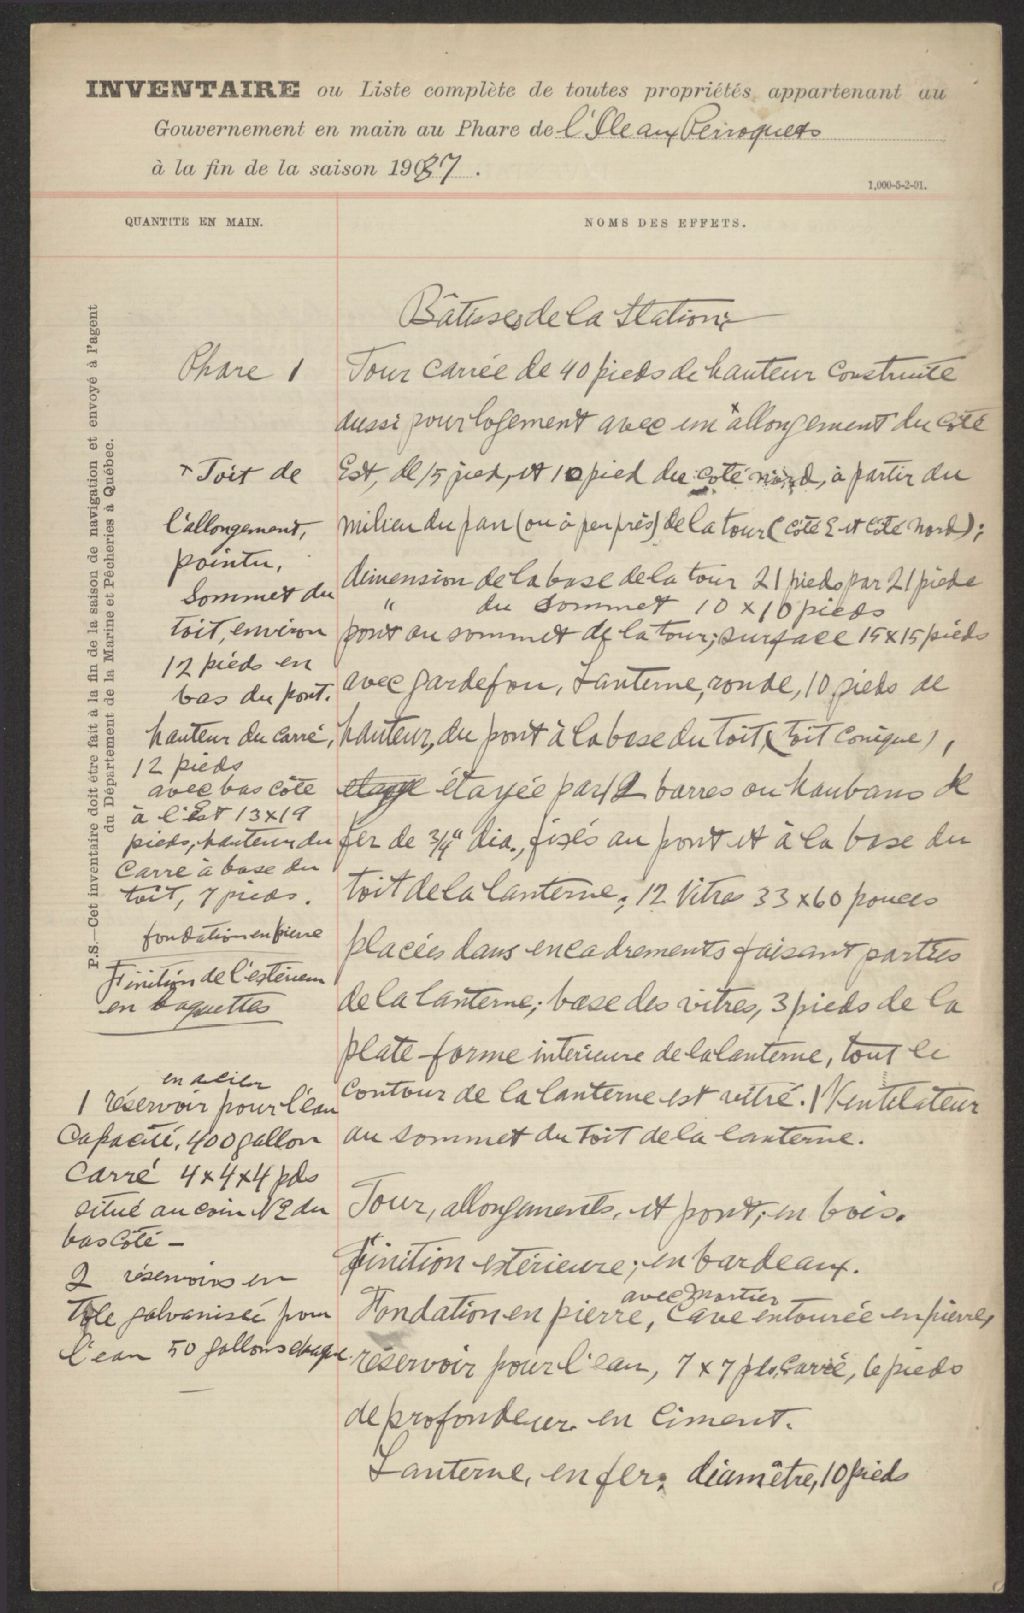 INVENTAIRE ou Liste complète de toutes propriétés appartenant au
Gouvernement en main au Phare de l'Ile aux Perroquets
à la fin de la saison 1937.
1,000-5-2-01.
QUANTITE EN MAIN.
NOMS DES EFFETS.
P.S.—Cet inventaire doit être fait à la fin de la saison de navigation et envoyé à l'agent
du Département de la Marine et Pêcheries à Québec.
Phare 1
x Toit de
l'allongement,
pointu,
Sommet du
toit, environ
12 pieds en
bas du pont.
hauteur du carré,
12 pieds
avec bas côté
à l'Est 13x19
pieds, hauteur du
Carré à base du
toit, 7 pieds.
fondation en pierre
Finition de l'extérieur
en baguettes
en acier
1 réservoir pour l'eau
Capacité, 400 gallon
Carré 4x4x4 pds
situé au coin NE du
bas Côté —
2 réservoirs en
Tôle galvanisée pour
l'eau 50 gallons chaque.
—
Bâtisses de la Station:
Tour carrée de 40 pieds de hauteur construite
aussi pour logement avec un x allongement du côté
Est, de 15 pied, et 10 pied du coté nord, à partir du
milieu du pan (ou à peu près) de la tour (côté E et Côté nord);
dimension de la base de la tour 21 pieds par 21 pieds
" du Sommet 10 x 10 pieds
pont au sommet de la tour; surface 15x15 pieds
avec gardefou, Lanterne, ronde, 10 pieds de
hauteur, du pont à la base du toit, (toit conique),
étayée par 12 barres ou haubans de
fer de 3/4" dia., fixés au pont et à la base du
toit de la lanterne; 12 Vitres 33x60 pouces
placées dans encadrements faisant parties
de la lanterne; base des vitres, 3 pieds de la
plate-forme intérieure de la lanterne, tout le
contour de la lanterne est vitré. 1 Ventilateur
au sommet du toit de la lanterne.
Tour, allongements, et pont, en bois.
finition extérieure; en bardeaux.
avec mortier
Fondation en pierre, Cave entourée en pierre,
réservoir pour l'eau, 7 x 7 pds. Carré, 6 pieds
de profondeur en Ciment.
Lanterne, en fer; diamètre, 10 pieds